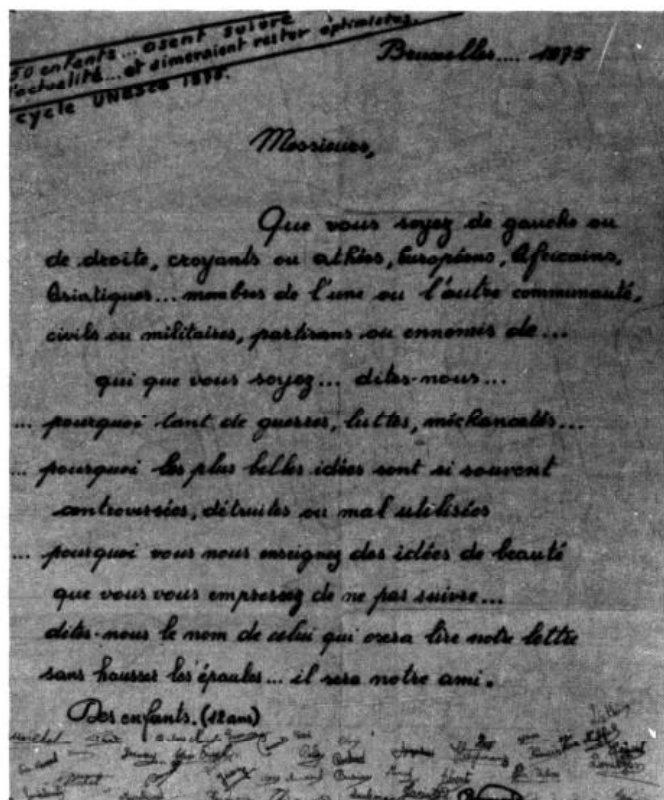 50 enfants... osent suivre
l'actualité... et aimeraient rester optimistes.
cycle UNESCO 1975.
Bruxelles.... 1975
Messieurs,
Que vous soyez de gauche ou
de droite, croyants ou athées, Européens, Africains,
Asiatiques... membres de l'une ou l'autre communauté,
civils ou militaires, partisans ou ennemis de...
qui que vous soyez... dites-nous...
... pourquoi tant de guerres, luttes, méchancetés...
... pourquoi les plus belles idées sont si souvent
controversées, détruites ou mal utilisées
... pourquoi vous nous enseignez des idées de beauté
que vous vous empressez de ne pas suivre...
dites-nous le nom de celui qui osera lire notre lettre
sans hausser les épaules... il sera notre ami.
Des enfants. (12 ans)